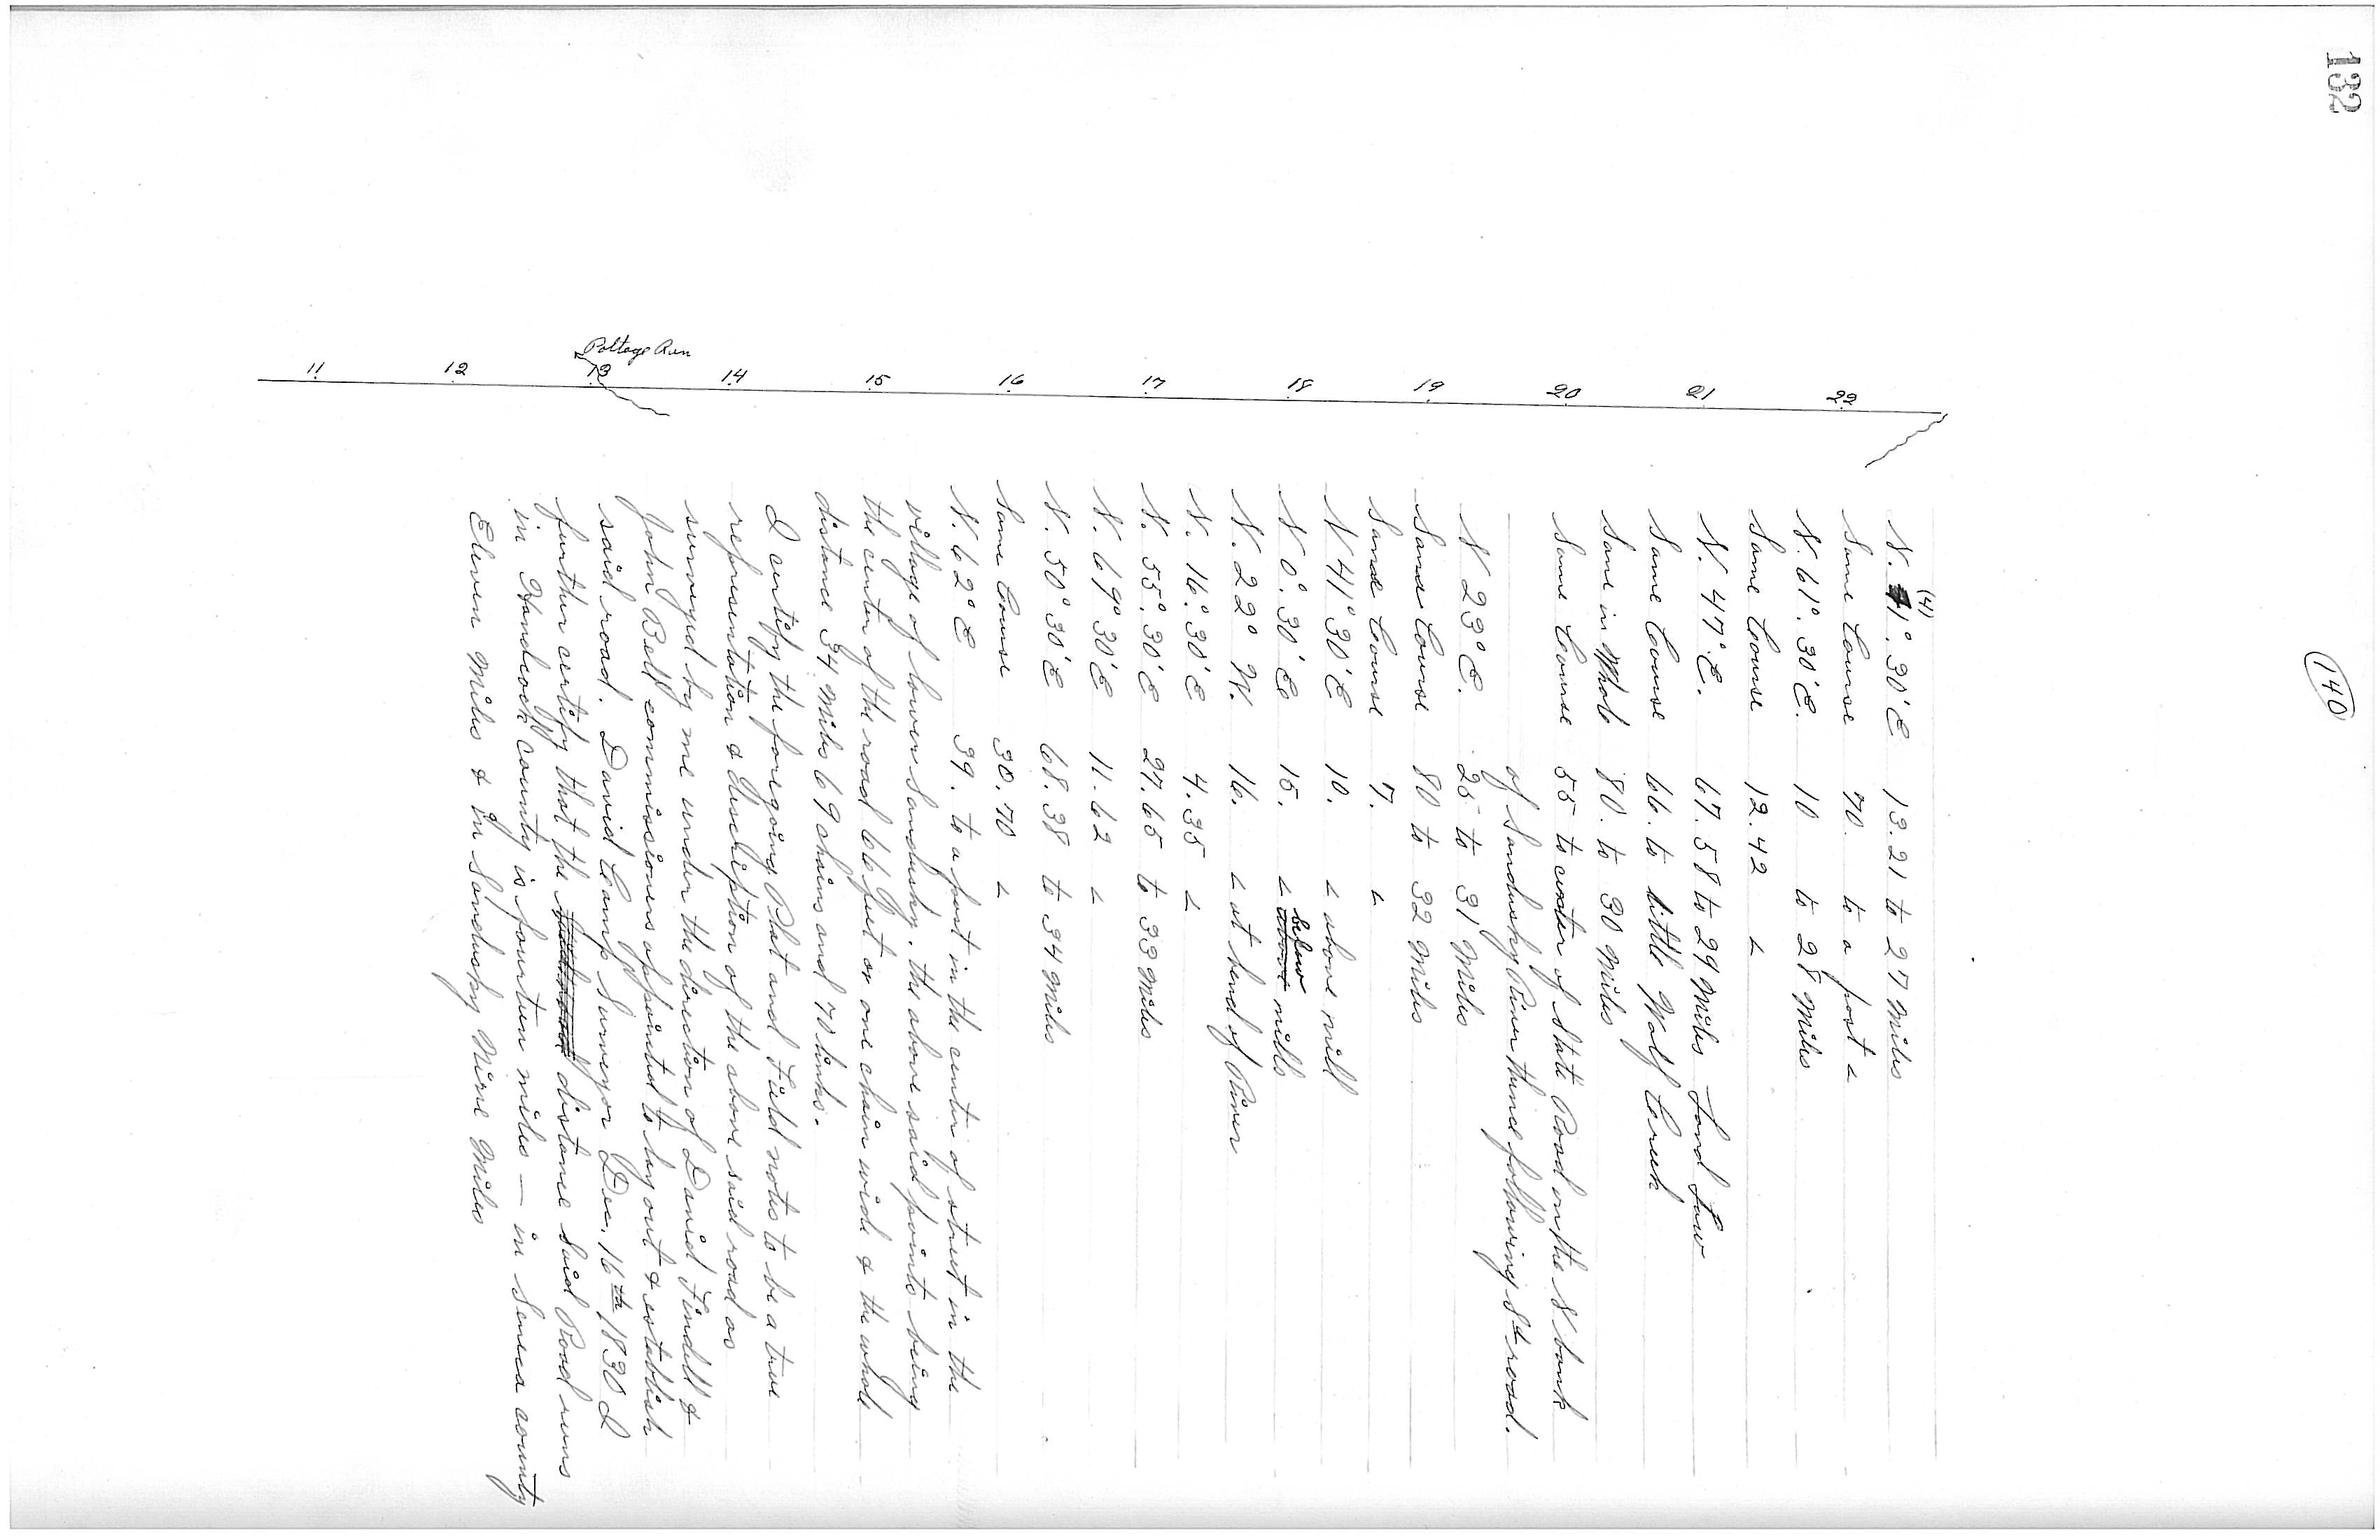 132
(140)
(4)
N. 41°. 30' E 13.21 to 27 Miles
Same Course 70. to a post L
N. 61°. 30' E. 10 to 28 Miles
Same Course 12.42 L
N. 47° E. 67.58 to 29 Miles
Same Course 66. to little Wolf Creek
Same in Whole 80. to 30 Miles
Same Course 55 to center of State Road on the N bank
of Sandusky River thence following St road.
N 23° E. 25 to 31 Miles
Same Course 80 to 32 Miles
Same Course 7. L
N 41° 30' E 10. L above mill
N 0°. 30' E 15. L above below mills
N. 22° W. 16. L at bend of River
N. 16°. 30' E 4.35 L
N. 55°. 30' E 27.65 to 33 Miles
N. 69° 30' E 11.62 L
N. 50° 30' E 68.38 to 34 Miles
Same Course 30.70 L
N. 62° E 39. to a post in the center of street in the
village of lower Sandusky. the above said points being
the center of the road 66 feet or one chain wide & the whole
distance 34 Miles 69 chains and 70 links.
I certify the foregoing Plat and Field notes to be a true
representation & discription of the above said road as
surveyed by me under the direction of David
John Bell commissioners appointed to lay out & establish
said road. David Camp Surveyor Dec. 16th 1830 I
further certify that the distance said Road runs
in Handcock county is fourteen miles — in Seneca county
Eleven Miles & in Sandusky Nine Miles
Poltage Run
11 12 13 14 15 16 17 18 19 20 21 22